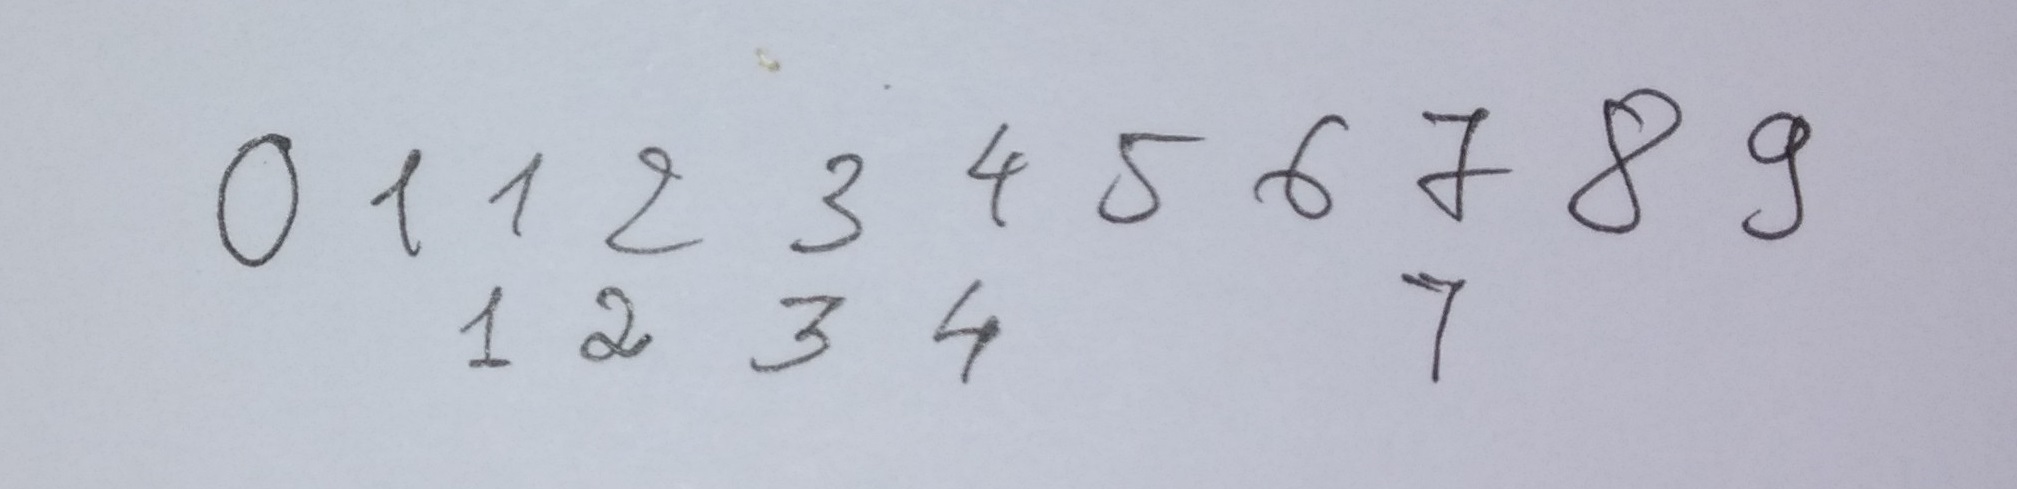 0 1 1 2 3 4 5 6 7 8 9
1 2 3 4 7